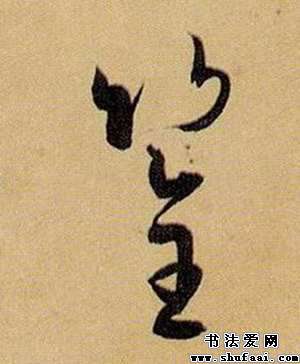 筌
书法爱网
www.shufaai.com